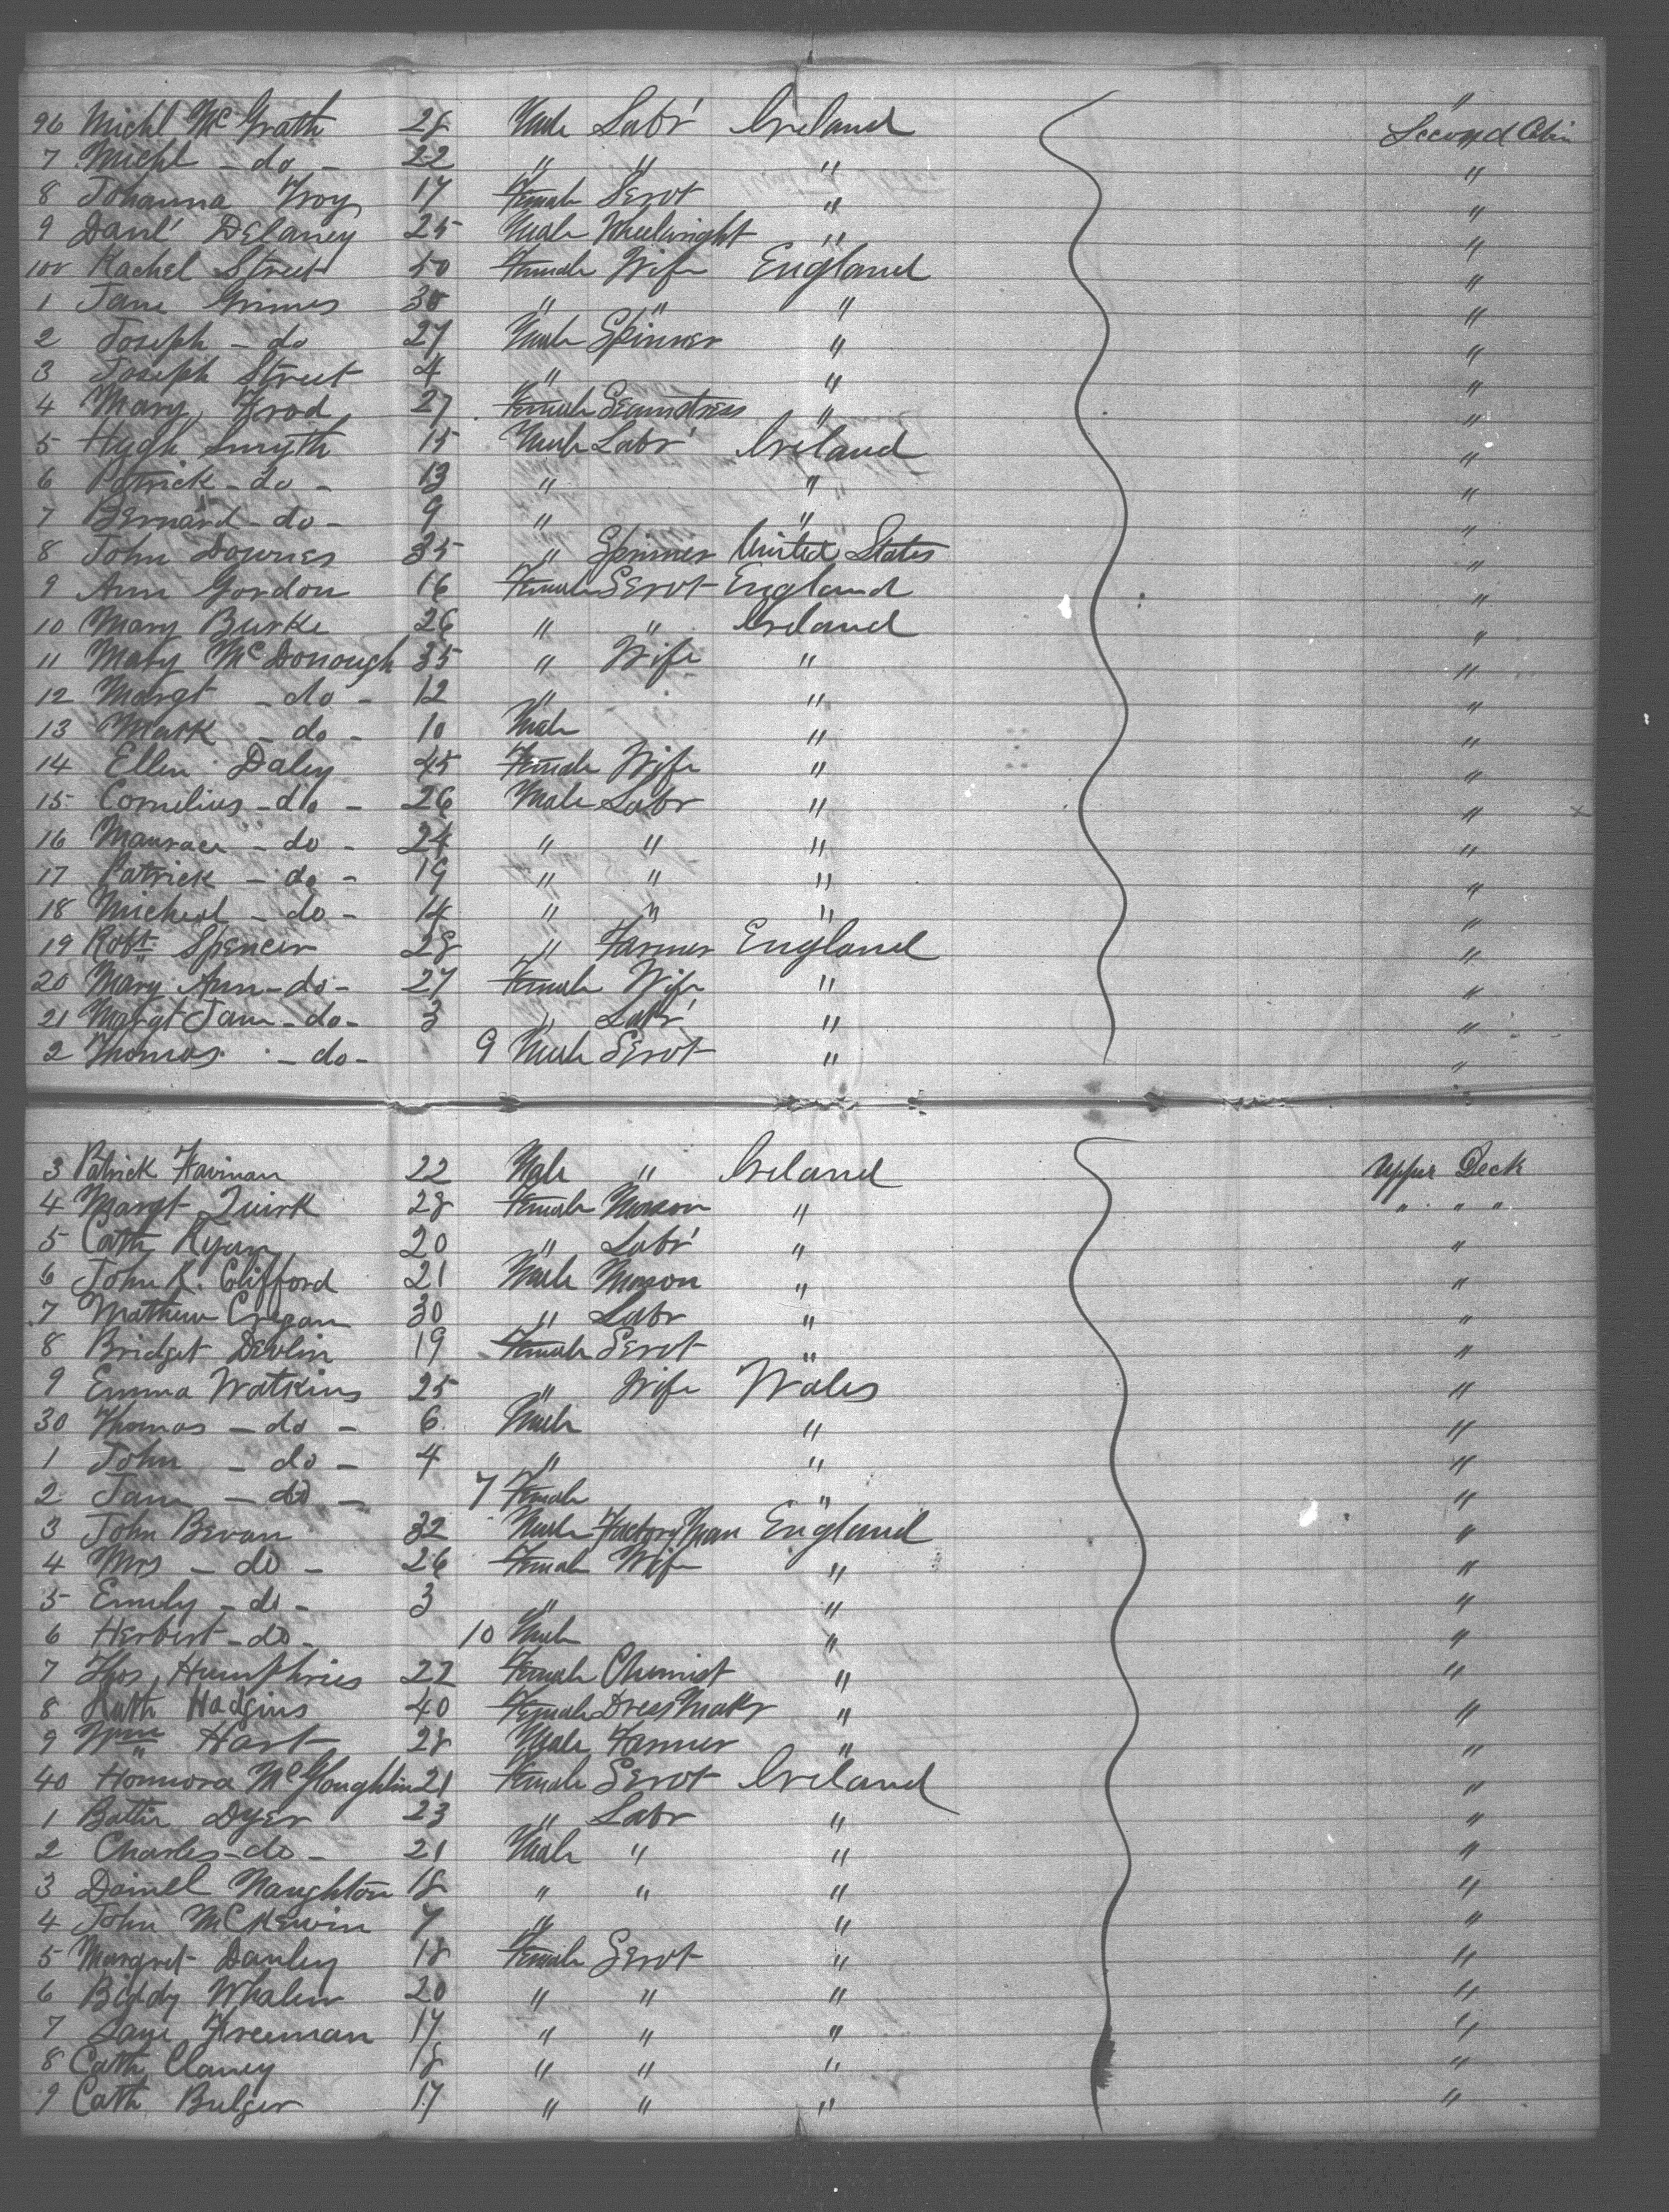 "
96 Michl McGrath 28 Male Labr Ireland Second Cabin
7 Michl - do - 22 " " " "
8 Johanna Troy 17 Female Servt " "
9 Danl Delaney 25 Male Wheelwright " "
100 Rachel Street 50 Female Wife England "
1 Jane Grimes 30 " " " "
2 Joseph - do 27 Male Spinner " "
3 Joseph Street 4 " " "
4 Mary Frod 27 Female Seamstress " "
5 Hugh Smyth 15 Male Labr Ireland "
6 Patrick - do - 13 " " "
7 Bernard - do - 9 " " "
8 John Downes 35 " Spinner United States "
9 Ann Gordon 16 Female Servt England "
10 Mary Burke 26 " " Ireland "
11 Mary McDonough 35 " Wife " "
12 Margt - do - 12 " " "
13 Mark - do - 10 Male " "
14 Ellen Daley 45 Female Wife " "
15 Cornelius - do - 26 Male Labr " "
16 Maurace - do - 24 " " " "
17 Patrick - do - 19 " " " "
18 Micheal - do - 14 " " " "
19 Robt Spencer 28 " Farmer England "
20 Mary Ann - do - 27 Female Wife " "
21 Margt Jane - do - 3 " Labr " "
2 Thomas - do - 9 Male Servt " "
3 Patrick 22 Male " Ireland Upper Deck
4 Margt Quirk 28 Female " " " "
5 Cath Ryan 20 " Labr " "
6 John K. Clifford 21 Male Mason " "
7 Mathew Cregan 30 " Labr " "
8 Bridget Devlin 19 Female Servt " "
9 Emma Watkins 25 " Wife Wales "
30 Thomas - do - 6 Male " "
1 John - do - 4 " " "
2 Jane - do - 7 Female " "
3 John Bevan 32 Male Factory Man England "
4 Mrs - do - 26 Female Wife " "
5 Emily - do - 3 " " "
6 Herbert - do - 10 Male " "
7 Thos Humphries 22 Female Chemist " "
8 Kath Hodgins 40 Female Dress Makr " "
9 Wm Hart 28 Male Farmer " "
40 Honnora McGloughlin 21 Female Servt Ireland "
1 Battie Dyer 23 " Labr " "
2 Charles - do - 21 Male " " "
3 Dainel Naughton 18 " " " "
4 John McKewin 7 " " "
5 Margret Danley 18 Female Servt " "
6 Biddy Whalen 20 " " " "
7 Jane Freeman 17 " " " "
8 Cath Clancy 18 " " " "
9 Cath Bulger 17 " " " "